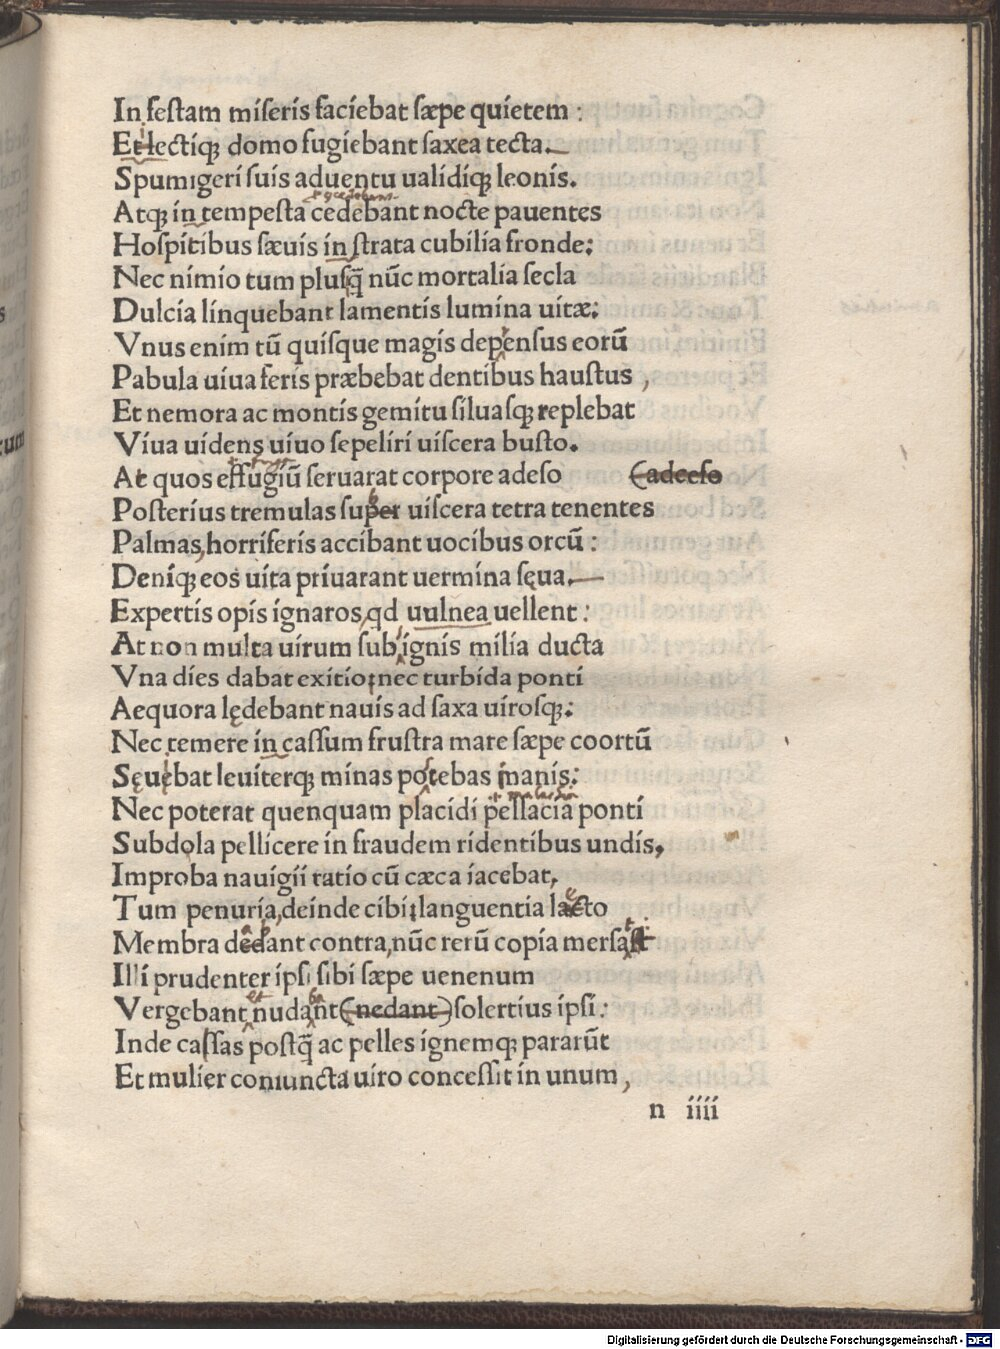 In festam miseris faciebat sæpe quietem :
Et lectiqꝫ domo fugiebant saxea tecta.
Spumigeri suis aduentu ualidiqꝫ leonis.
Atqꝫ in tempesta cedebant nocte pauentes
Hospitibus sæuis in strata cubilia fronde:
Nec nimio tum plusq̃ nũc mortalia secla
Dulcia linquebant lamentis lumina uitæ:
Vnus enim tũ quisque magis depensus eorũ
Pabula uiua feris præbebat dentibus haustus ,
Et nemora ac montis gemitu siluasqꝫ replebat
Viua uidens uiuo sepeliri uiscera busto.
At quos effugiũ seruarat corpore adeso (adceso
Posterius tremulas super uiscera tetra tenentes
Palmas, horriferis accibant uocibus orcũ :
Deniqꝫ eos uita priuarant uermina sęua.
Expertis opis ignaros, qd uulnea uellent :
At non multa uirum sub ignis milia ducta
Vna dies dabat exitio: nec turbida ponti
Aequora lędebant nauis ad saxa uirosqꝫ:
Nec temere in cassum frustra mare sæpe coortũ
Sęuębat leuiterqꝫ minas potebas manis:
Nec poterat quenquam placidi pellacia ponti
Subdola pellicere in fraudem ridentibus undis,
Improba nauigii ratio cũ cæca iacebat,
Tum penuria, deinde cibi: languentia lacto
Membra dedant contra, nũc rerũ copia mersast
Illi prudenter ipsi sibi sæpe uenenum
Vergebant et nudant (nedant) solertius ipsi:
Inde cassas postq̃ ac pelles ignemqꝫ pararũt
Et mulier coniuncta uiro concessit in unum ,
n iiii
Digitalisierung gefördert durch die Deutsche Forschungsgemeinschaft - DFG